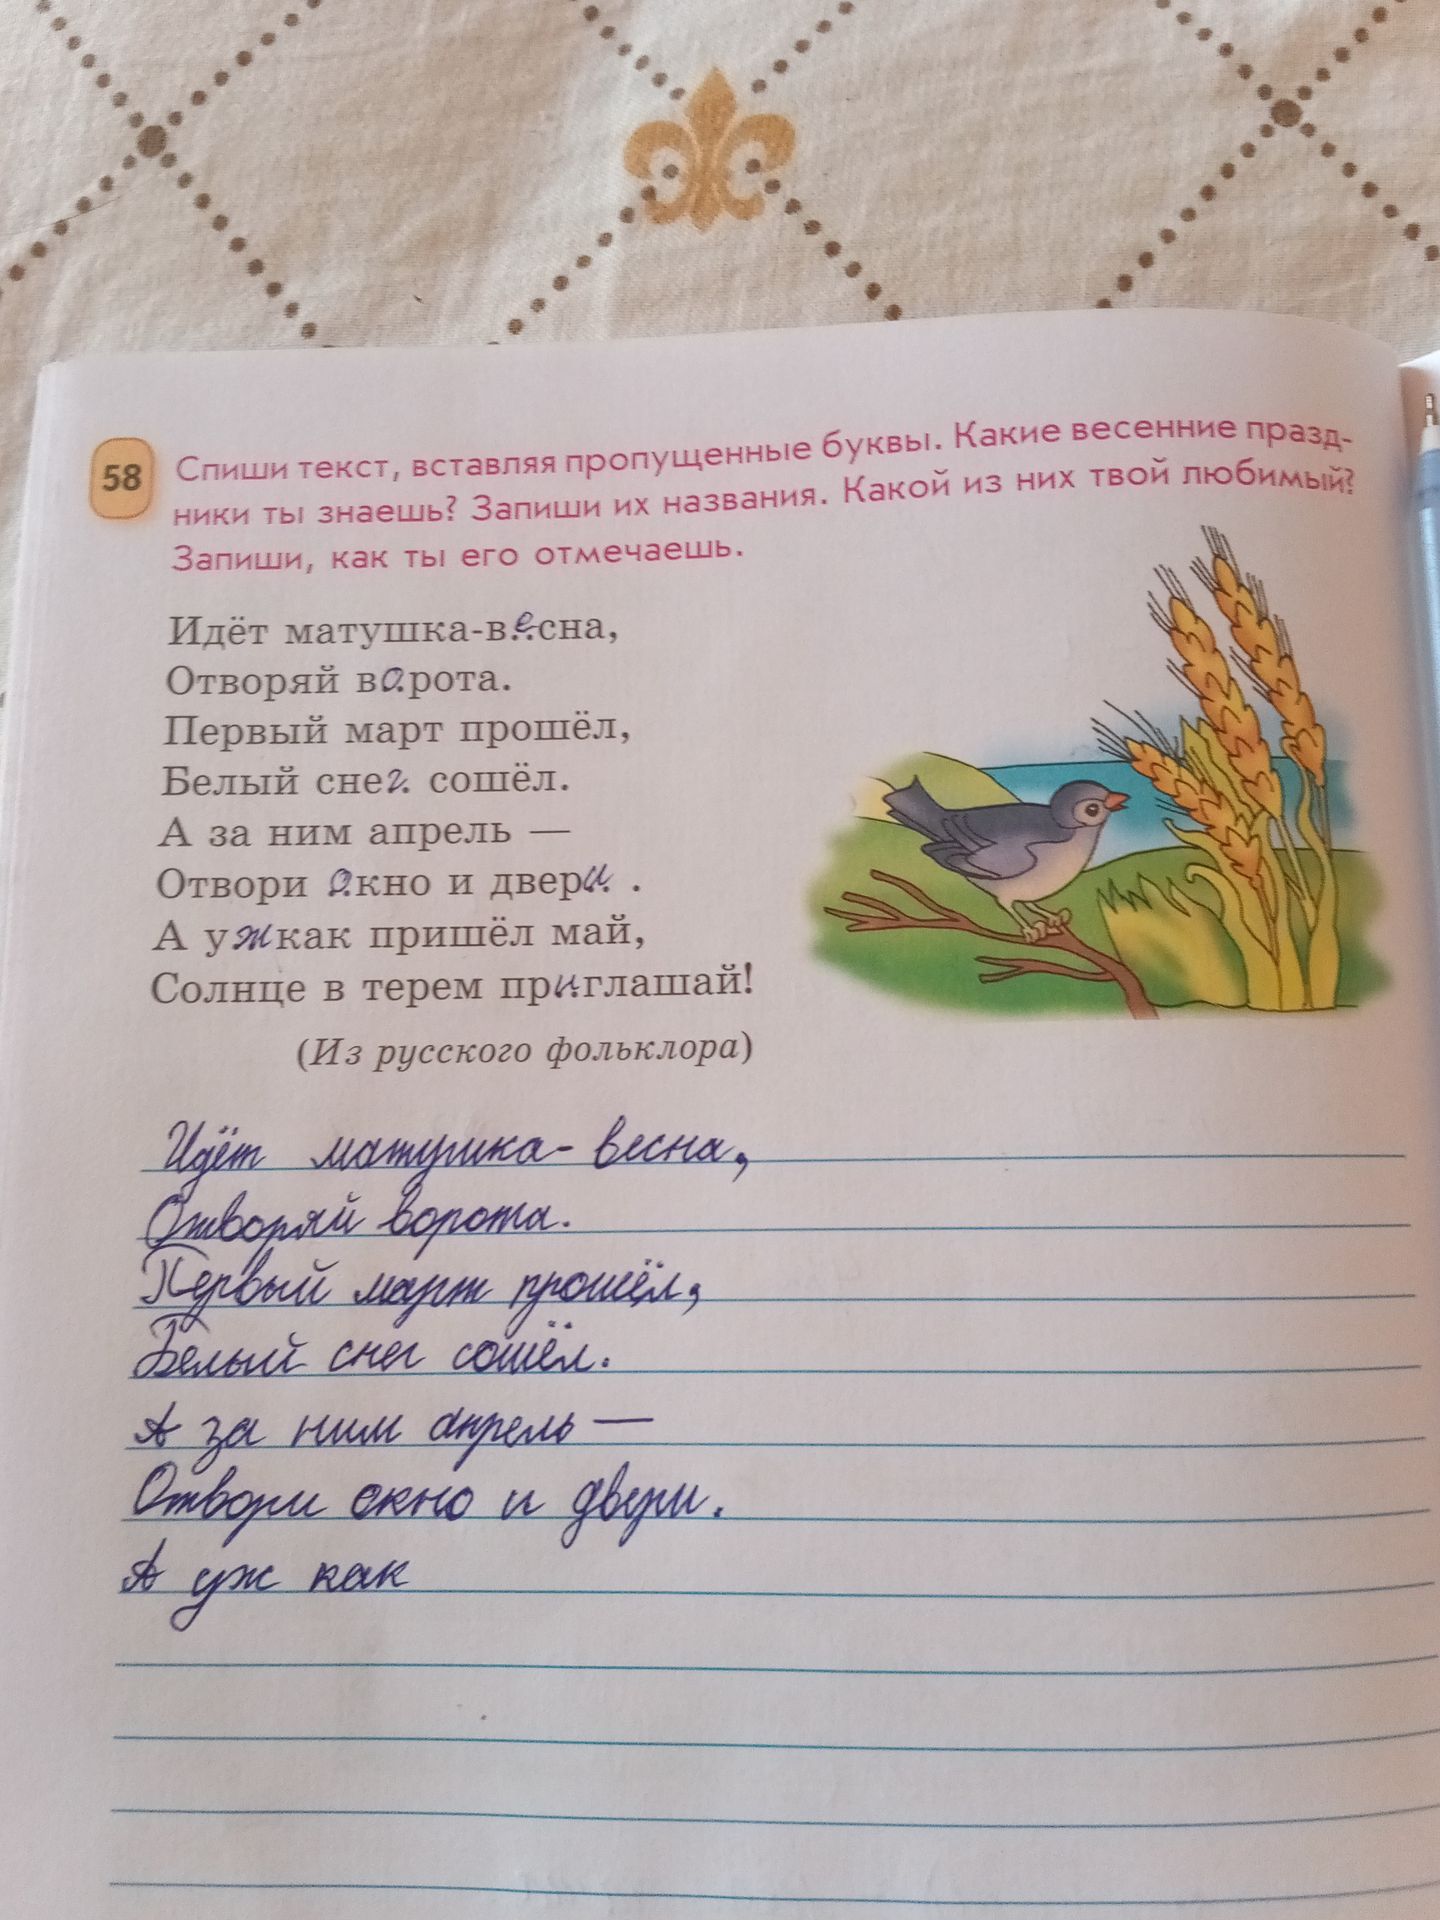 58
Спиши текст, вставляя пропущенные буквы. Какие весенние празд-
ники ты знаешь? Запиши их названия. Какой из них твой любимый?
Запиши, как ты его отмечаешь.
Идёт матушка-весна,
Отворяй ворота.
Первый март прошёл,
Белый снег сошёл.
А за ним апрель —
Отвори окно и двери .
А уж как пришёл май,
Солнце в терем приглашай!
(Из русского фольклора)
Идёт матушка-весна,
Отворяй ворота.
Первый март прошёл,
Белый снег сошёл.
А за ним апрель —
Отвори окно и двери.
А уж как